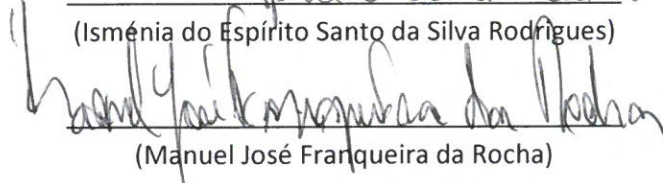 (Isménia do Espírito Santo da Silva Rodrigues)
Manuel José Franqueira da Rocha
(Manuel José Franqueira da Rocha)